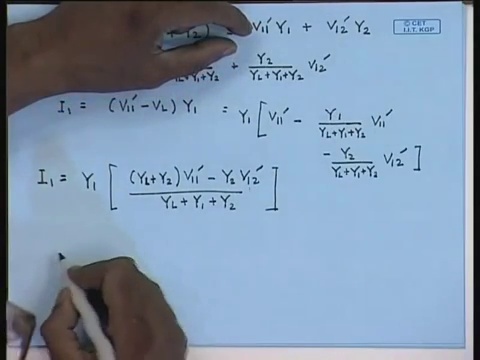 + Y₂) V₁₁′ Y₁ + V₁₂′ Y₂
© CET
I.I.T. KGP
Y_L+Y₁+Y₂ + Y₂/(Y_L+Y₁+Y₂) V₁₂′
I₁ = (V₁₁′ − V_L) Y₁ = Y₁ [ V₁₁′ − Y₁/(Y_L+Y₁+Y₂) V₁₁′
− Y₂/(Y_L+Y₁+Y₂) V₁₂′ ]
I₁ = Y₁ [ ((Y_L+Y₂) V₁₁′ − Y₂ V₁₂′)/(Y_L + Y₁ + Y₂) ]